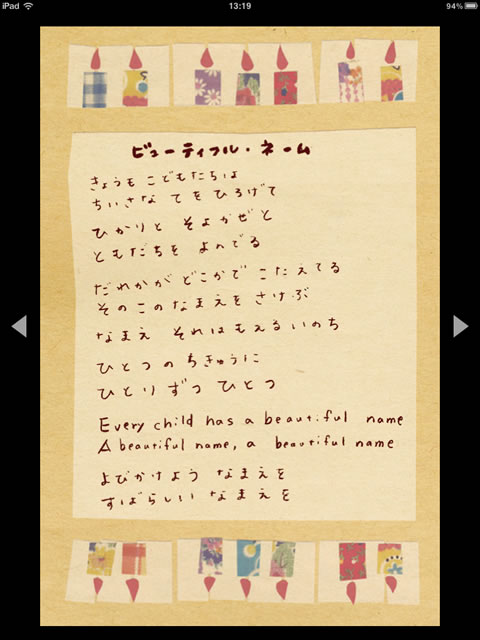 iPad 13:19 94%
ビューティフル・ネーム
きょうも こどもたちは
ちいさな てを ひろげて
ひかりと そよかぜと
ともだちを よんでる
だれかが どこかで こたえてる
そのこの なまえを さけぶ
なまえ それはもえるいのち
ひとつの ちきゅうに
ひとり ずつ ひとつ
Every child has a beautiful name
A beautiful name, a beautiful name
よびかけよう なまえを
すばらしい なまえを